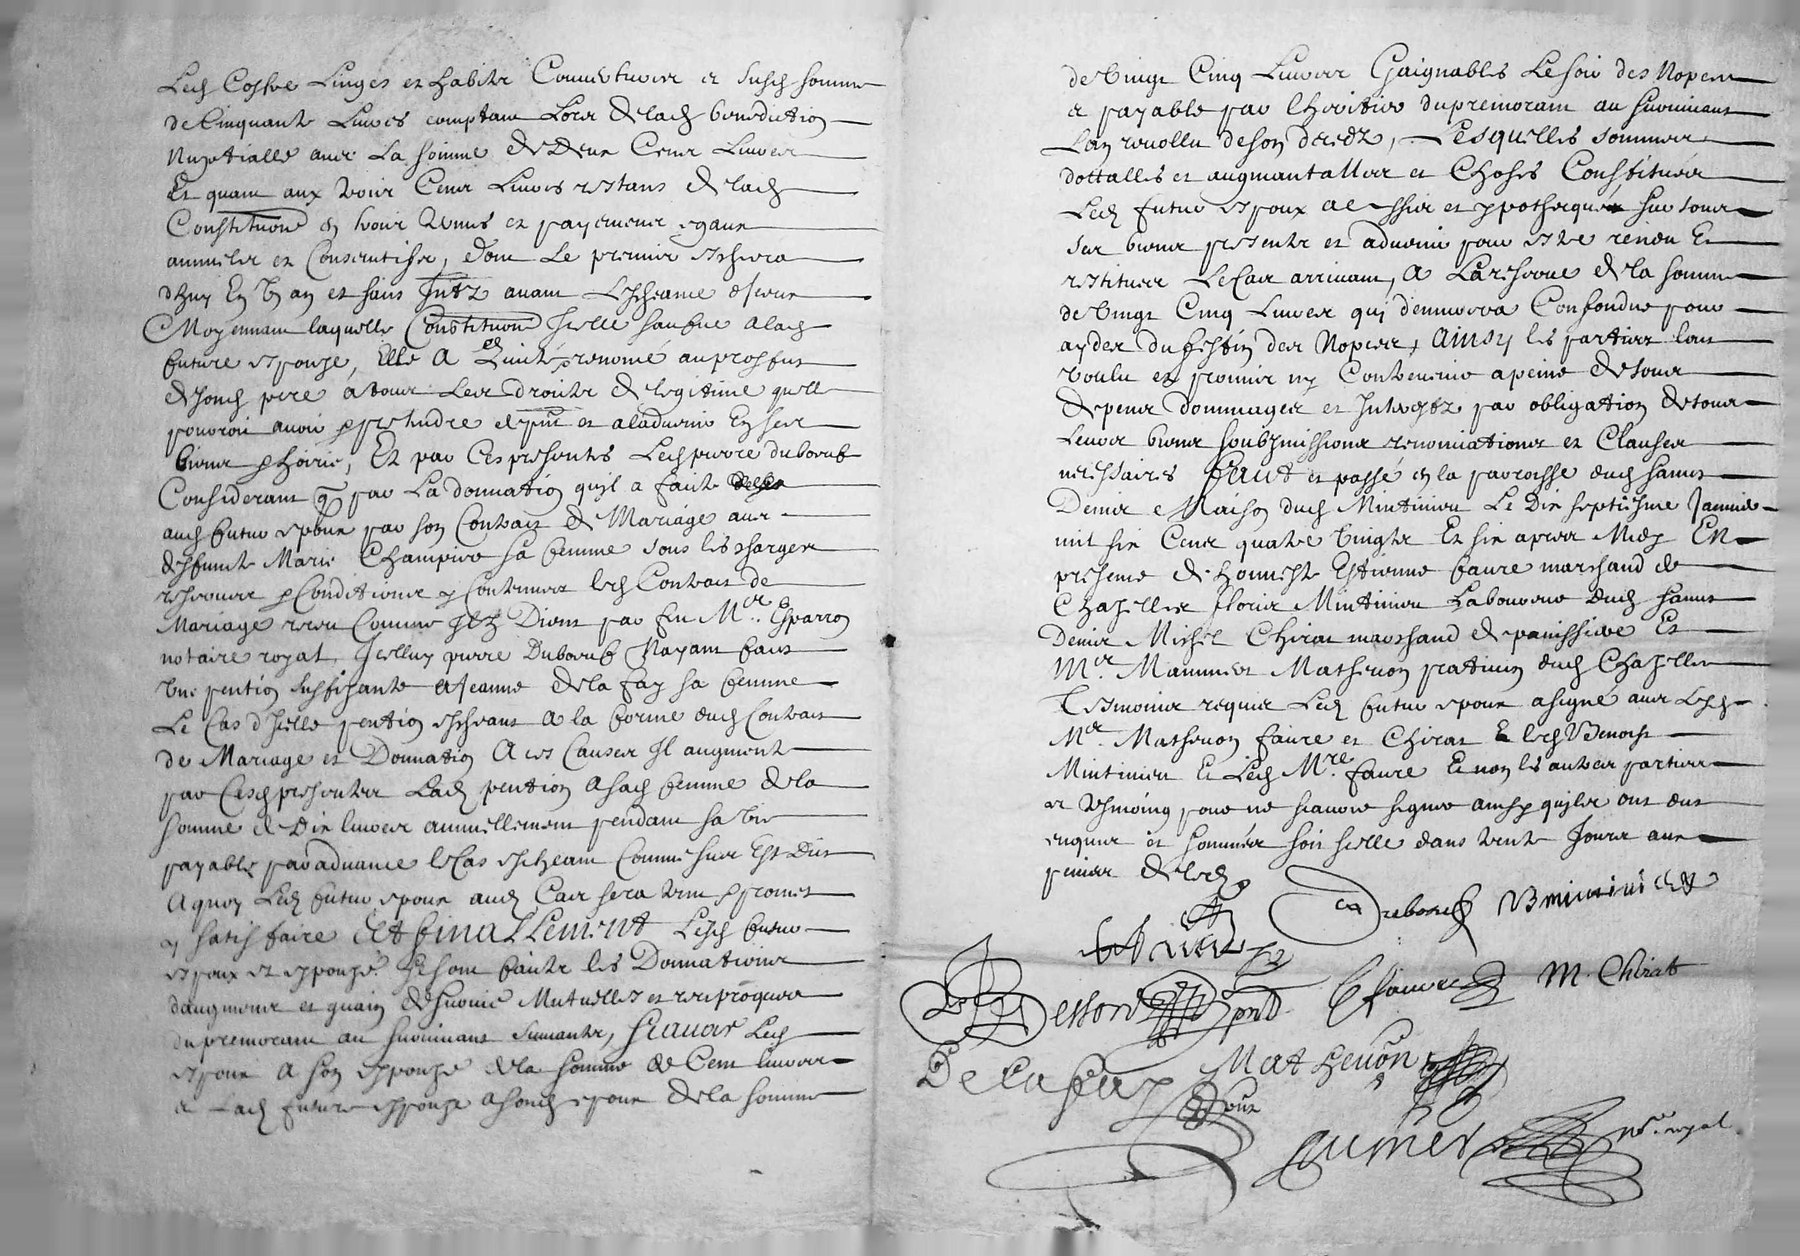 Led Coffre Linges et habitz Couvertures et susd somme
de Cinquante Livres comptant Lors de lad benediction
Nuptialle avec La somme de Deux Cent Livres
Et quant aux trois Cent Livres restans de lad
Constitution en trois termes et payements egaux
annuels et Consecutifs, dont Le premier eschera
d'huy En Un an et sans Intz avant L'escheance d'iceux
Moyennant laquelle Constitution Icelle faicte a lad
future espouze, Elle a quité et renoncé au proffit
de sond pere a tous Les droits de legitime quelle
pourroit avoir et pretendre de pnt et a ladvenir En ses
biens et hoirie, Et par Ces presentes Led pierre duboeuf
Considerant que par La donnation qu'il a faite
aud futur epoux par son Contrat de Mariage avec
deffunte Marie Champier sa femme sous les charges
reserves et Conditions y Contenues led Contrat de
Mariage receu Comme Il dient par feu Me Esparron
notaire royal, Icelluy pierre Duboeuf N'ayant faict
Une pention suffisante a Jeanne de la fay sa femme
Le Cas d'Icelle pention escheant a la forme dud Contrat
de Mariage et Donnation A ces Causes Il augmente
par Cesd presentes Lad pention a sad femme de la
somme de Dix livres annuellement pendant sa vie
payable par advance le Cas escheant Comme sus Est Dict
A quoy Led futur epoux aud Cas sera tenu et promet
y satisfaire Et finallement Lesd futur
espoux et espouze se sont faits les Donnations
d'augment et gain de survie Mutuelles et reciproques
du premourant au survivant suivante, scavoir Led
espoux a son espouze de la somme de Cent livres
et Lad future espouze a sond epoux de la somme
de Vingt Cinq Livres Gaignables Le soir des Nopces
et payable par l'heritier du premourant au survivant
L'an revollu de son decedz, Lesquelles sommes
dottalles et augmantalles et Choses Constituées
Led futur espoux a assuré et ypothequé sur tous
ses biens presents et advenir pour estre rendu Et
restituer Le Cas arrivant, A La reserve de la somme
de Vingt Cinq Livres qui demeurera Confondue pour
ayder du festin des Nopces, Ainsy les parties l'ont
voulu et promis ny Contrevenir a peine de tous
depens dommages et Interestz par obligation de tous
Leurs biens soubzmissions renonciations et Clauses
necessaires faict et passé en la parroisse dud sainct
Denis Maison dud Mintinieu Le Dix septiesme Janvier
mil six Cent quatre vingtz Et six apres Midy En
presence de honneste Estienne faure marchand de
Chazelles floris Mintinieu Laboureur dud sainct
Denis Michel Chirat marchand de panissiere Et
Me Mammert Mathevon praticien dud Chazelles
Tesmoins requis Led futur epoux a signé avec Lesd
Me Mathevon faure et Chirat Et led Benoist
Mintinieu Et Led Mre faure Et non les autres parties
et tesmoing pour ne scavoir signer ainsy quils ont dict
enquis et sommés soit scelle dans trente Jours aux
peines de led
Duboeuf B mintinieu
Besson pnt E faure M. Chirat
De la fay Mathevon
royal